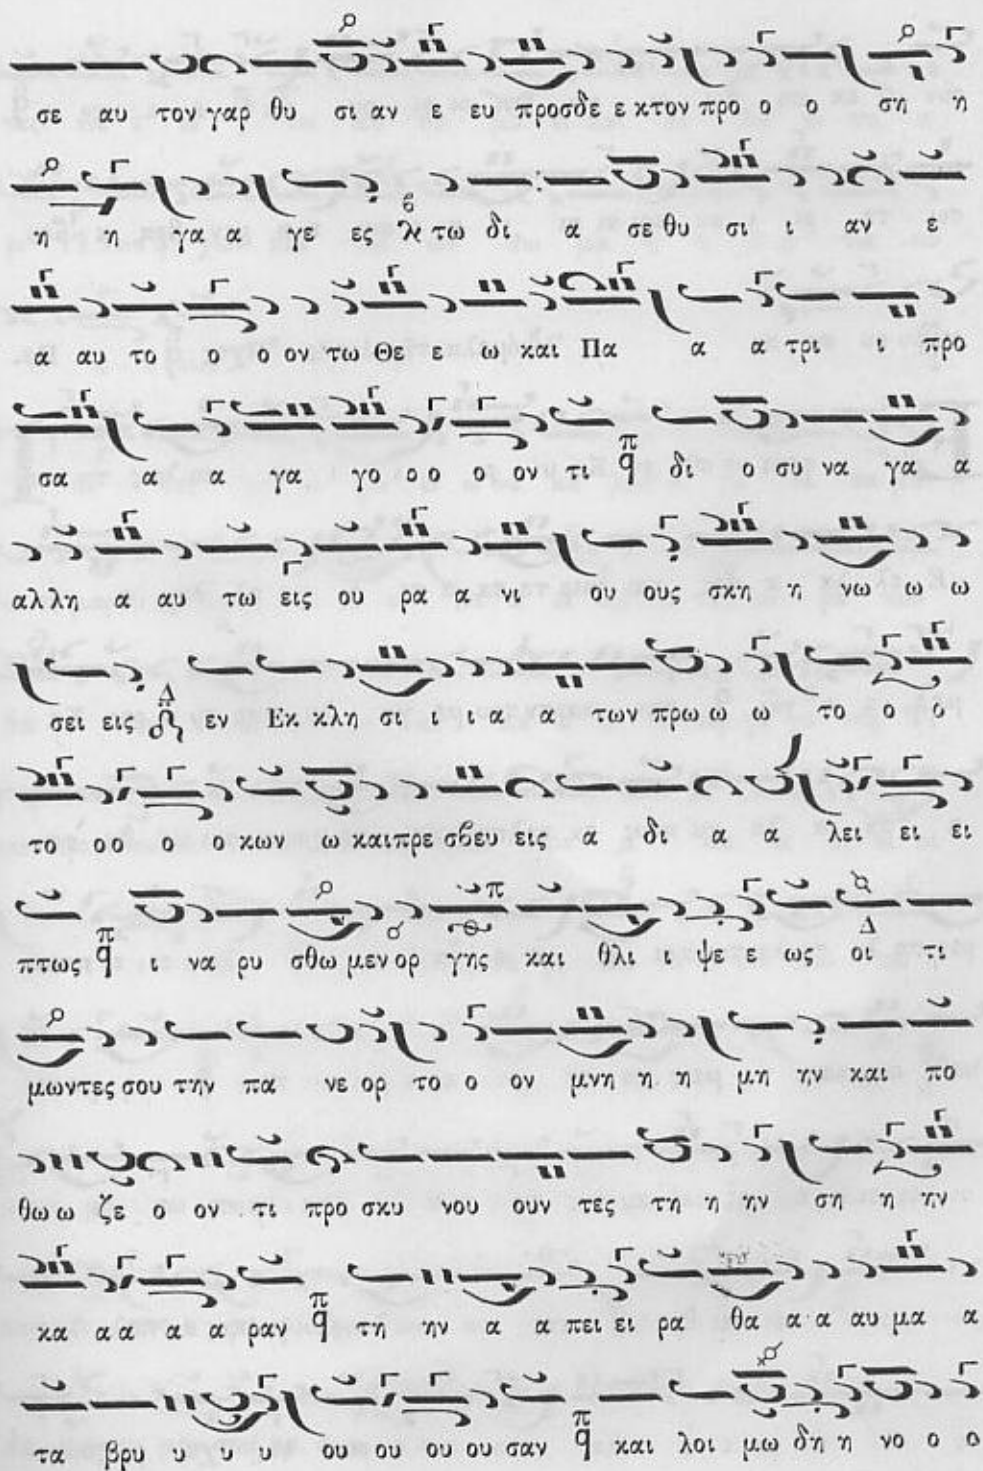 σε αυ τον γαρ θυ σι αν ε ευ προσδε ε κτον προ ο ο ση η
η η γα α γε ες τω δι α σε θυ σι ι αν ε
α αυ το ο ο ον τω Θε ε ω και Πα α α τρι ι προ
σα α α γα γο ο ο ο ον τι π q δι ο συ να γα α
αλ λη α αυ τω εις ου ρα α νι ου ους σκη η νω ω ω
σει εις Δ εν Εκ κλη σι ι ι α α των πρω ω ω το ο ο
το ο ο ο ο κων ω και πρε σβευ εις α δι α α λει ει ει
πτως π q ι να ρυ σθω μεν ορ γης και θλι ι ψε ε ως οι τι
μωντες σου την πα νε ορ το ο ον μνη η η μη ην και πο
θω ω ζε ο ον τι προ σκυ νου ουν τες τη η ην ση η ην
κα α α α α ραν π q τη ην α α πει ει ρα θα α α αυ μα α
τα βρυ υ υ υ ου ου ου ου σαν π q και λοι μω δη η νο ο ο